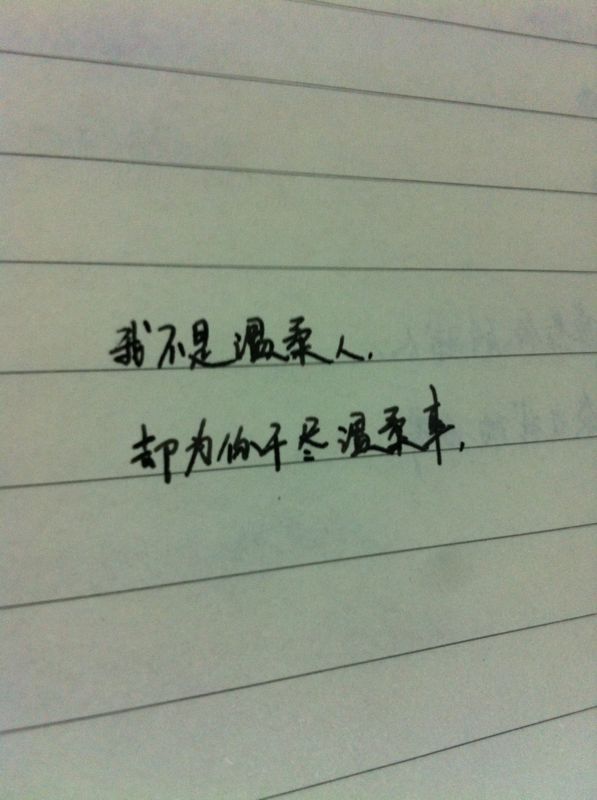 我不是温柔人.
却为你干尽温柔事.